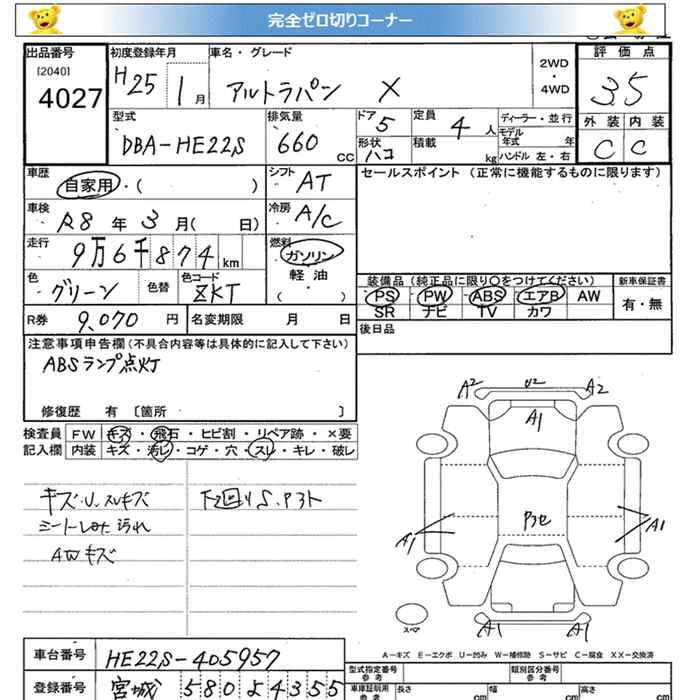 完全ゼロ切りコーナー
出品番号 初度登録年月 車名・グレード 評価点
[2040] 4027 H25 1月 アルトラパン X 2WD・4WD 3.5
外装 内装
C C
型式 排気量 ドア 定員 ディーラー・並行
DBA-HE22S 660 CC 5 4人 モデル年式 年
形状 積載 ハンドル 左・右
ハコ kg
車歴 シフト セールスポイント (正常に機能するものに限ります)
自家用・( ) AT
車検 冷房
R8年3月( 日) A/C
走行 燃料
9万6千874km ガソリン
軽油
( ・ )
色 色替 色コード 装備品 (純正品に限り○をつけてください) 新車保証書
グリーン ZKT PS PW ABS エアB AW 有・無
SR ナビ TV カワ
R券 9,070円 名変期限 月 日 後日品
注意事項申告欄(不具合内容等は具体的に記入して下さい)
ABSランプ点灯
修復歴 有 [箇所 ]
検査員 FW キズ・飛石・ヒビ割・リペア跡・×要
記入欄 内装 キズ・汚レ・コゲ・穴・スレ・キレ・破レ
キズ・U.スレキズ
シートしみ汚れ
AWキズ
下2回りS.P3ト
A2 U2 A2
A1
P3セ
A1 A1
A1 A1
スペア
A―キズ E―エクボ U―凹み W―補修跡 S―サビ C―腐食 XX―交換済
車台番号 HE22S-405957 型式指定番号 参考 類別区分番号 参考
登録番号 宮城 580よ4355 車庫証明用 参考 長さ cm 幅 cm 高さ cm